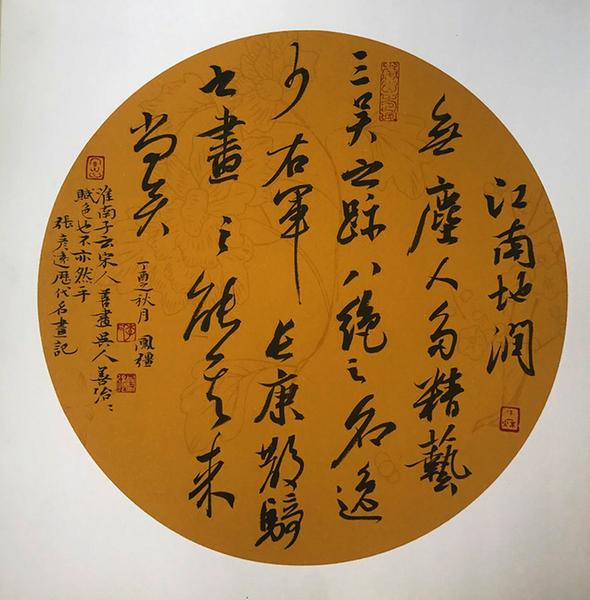 江南地潤
無塵人多精藝
三吳之跡八絕之名逸
少右軍長康散騎
書畫之能其來
尚矣
丁酉之秋月鳳
淮南子云宋人善畫吳人善冶〻
賦色也不亦然乎
張彥遠歷代名畫記